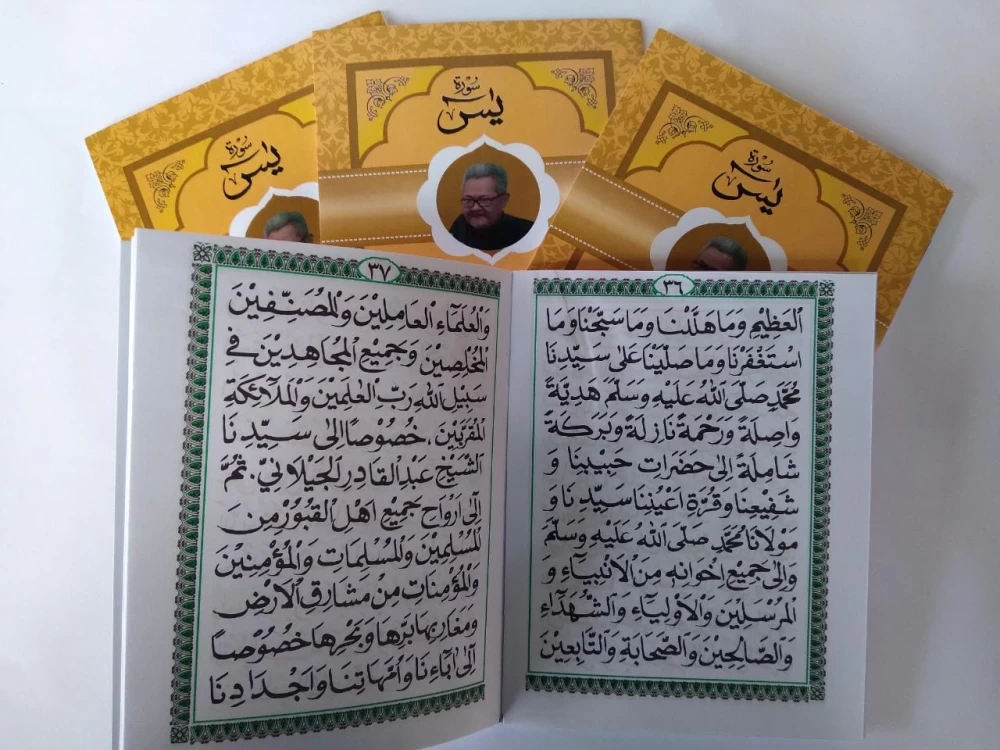 سورة
يس
سورة
يس
سورة
يس
٣٦
الْعَظِيْمِ وَمَا هَلَّلْنَا وَمَا سَبَّحْنَا وَمَا
اسْتَغْفَرْنَا وَمَا صَلَّيْنَا عَلٰى سَيِّدِنَا
مُحَمَّدٍ صَلَّى اللهُ عَلَيْهِ وَسَلَّمَ هَدِيَّةً
وَاصِلَةً وَرَحْمَةً نَازِلَةً وَبَرَكَةً
شَامِلَةً إِلٰى حَضَرَاتِ حَبِيْبِنَا وَ
شَفِيْعِنَا وَقُرَّةِ اَعْيُنِنَا سَيِّدِنَا وَ
مَوْلَانَا مُحَمَّدٍ صَلَّى اللهُ عَلَيْهِ وَسَلَّمَ
وَإِلٰى جَمِيْعِ اِخْوَانِهِ مِنَ الْاَنْبِيَاءِ وَ
الْمُرْسَلِيْنَ وَالْاَوْلِيَاءِ وَالشُّهَدَاءِ
وَالصَّالِحِيْنَ وَالصَّحَابَةِ وَالتَّابِعِيْنَ
٣٧
وَالْعُلَمَاءِ الْعَامِلِيْنَ وَالْمُصَنِّفِيْنَ
الْمُخْلِصِيْنَ وَجَمِيْعِ الْمُجَاهِدِيْنَ فِي
سَبِيْلِ اللهِ رَبِّ الْعٰلَمِيْنَ وَالْمَلَآئِكَةِ
الْمُقَرَّبِيْنَ، خُصُوْصًا إِلٰى سَيِّدِنَا
الشَّيْخِ عَبْدِ الْقَادِرِ الْجَيْلَانِيِّ. ثُمَّ
إِلٰى اَرْوَاحِ جَمِيْعِ اَهْلِ الْقُبُوْرِ مِنَ
الْمُسْلِمِيْنَ وَالْمُسْلِمَاتِ وَالْمُؤْمِنِيْنَ
وَالْمُؤْمِنَاتِ مِنْ مَشَارِقِ الْاَرْضِ
وَمَغَارِبِهَا بَرِّهَا وَبَحْرِهَا خُصُوْصًا
إِلٰى اٰبَاءِنَا وَاُمَّهَاتِنَا وَاَجْدَادِنَا